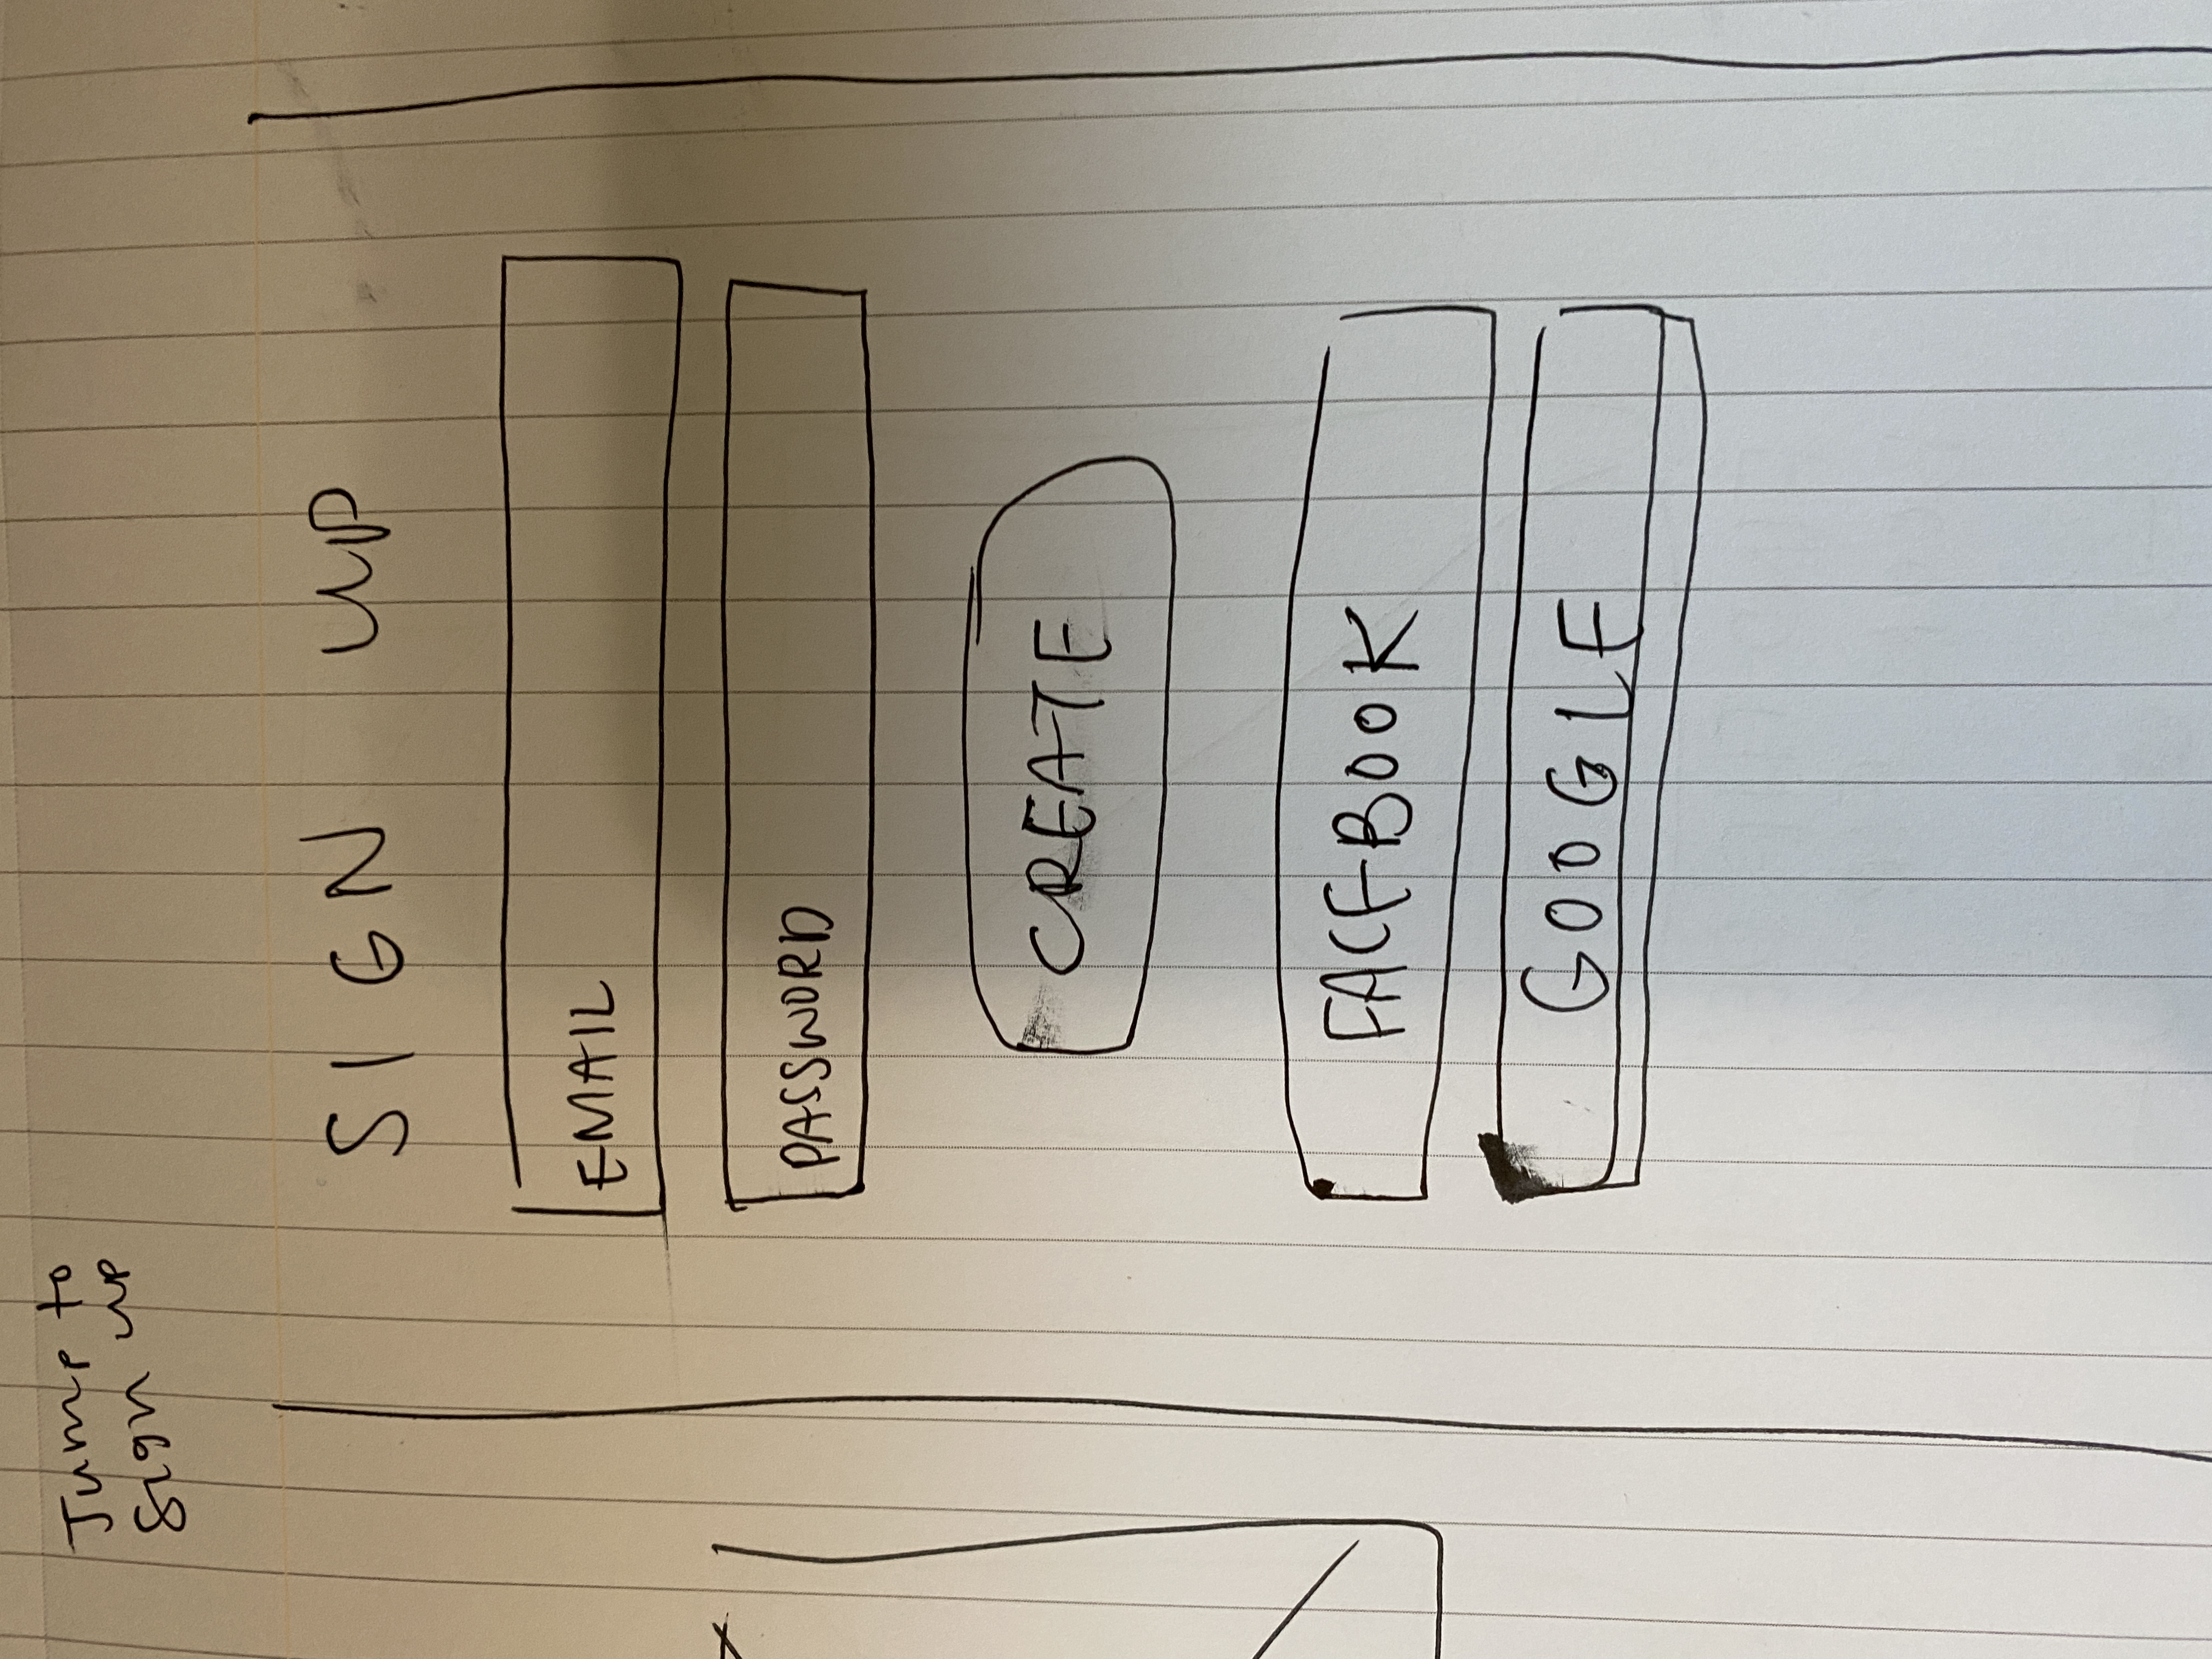 Jump to
Sign up
SIGN UP
EMAIL
PASSWORD
CREATE
FACEBOOK
GOOGLE